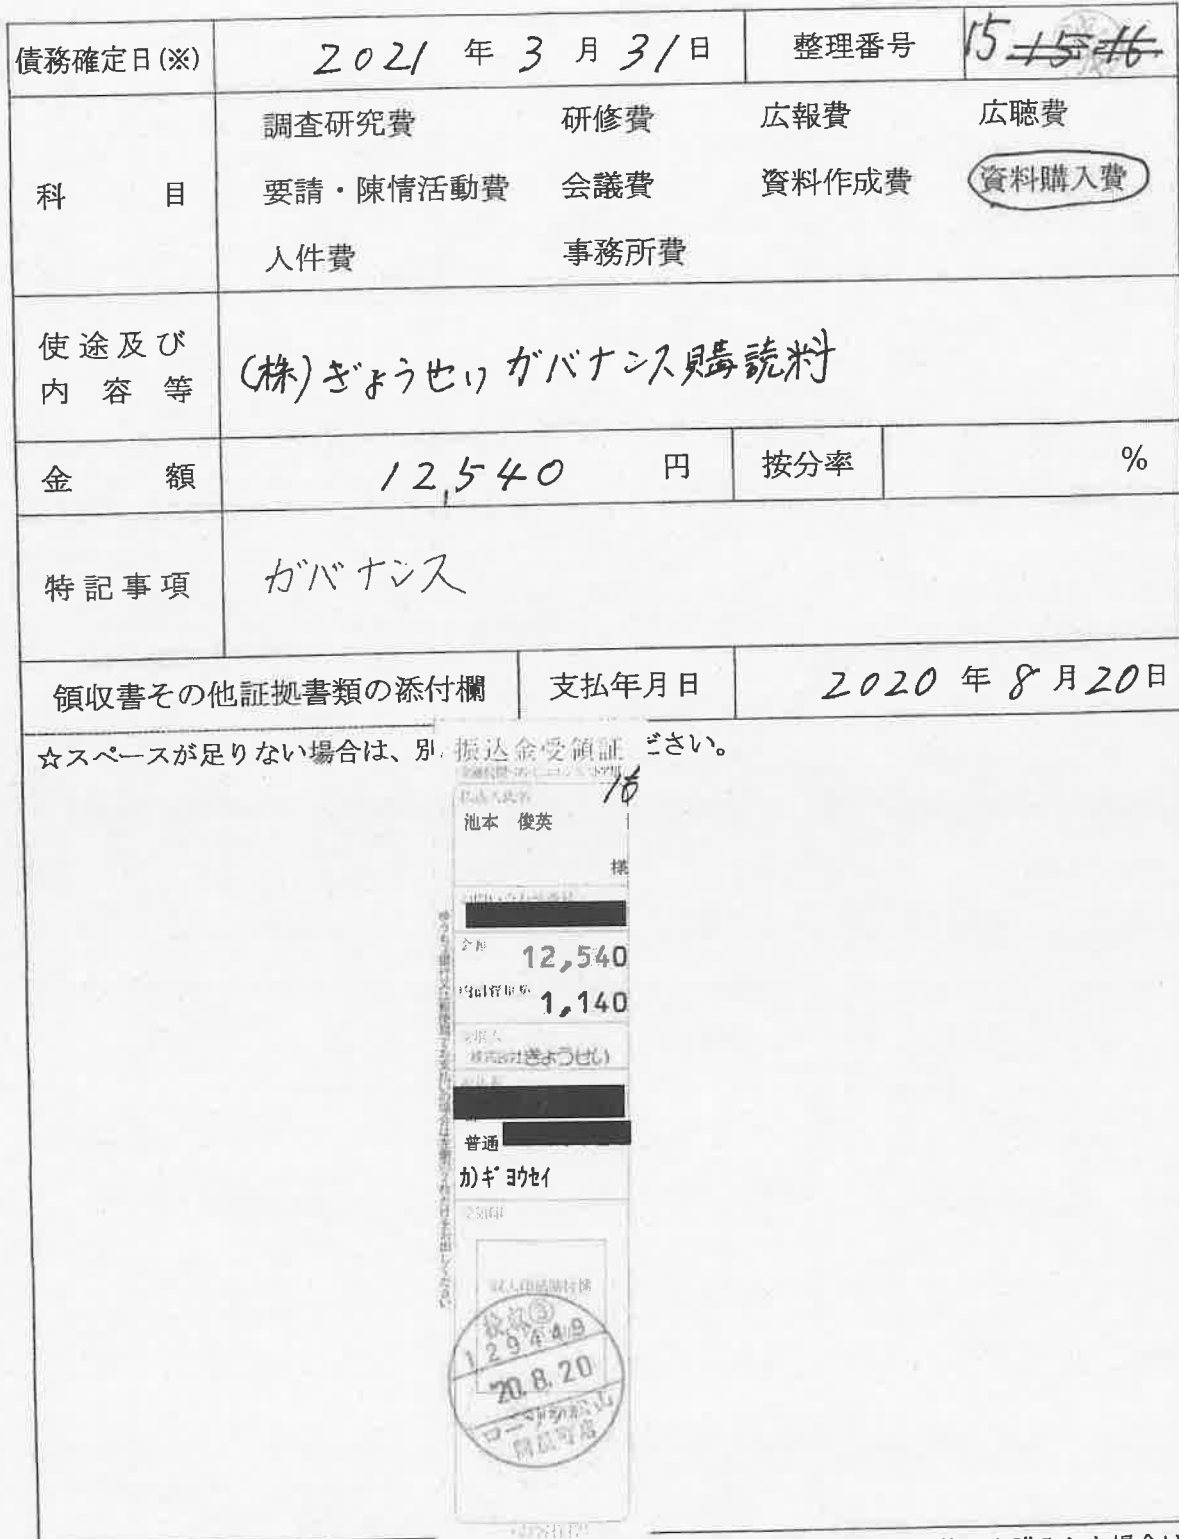 債務確定日(※) 2021 年 3 月 31日 整理番号 15 15-16
科 目
調査研究費 研修費 広報費 広聴費
要請・陳情活動費 会議費 資料作成費 資料購入費
人件費 事務所費
使途及び
内容等
(株)ぎょうせい ガバナンス購読料
金 額 12,540 円 按分率 %
特記事項 ガバナンス
領収書その他証拠書類の添付欄 支払年月日 2020 年 8 月 20日
☆スペースが足りない場合は、別 ださい。
振込金受領証
16
池本 俊英
様
金額 12,540
1,140
株式会社ぎょうせい
普通
カ)ギヨウセイ
129449
20.8.20